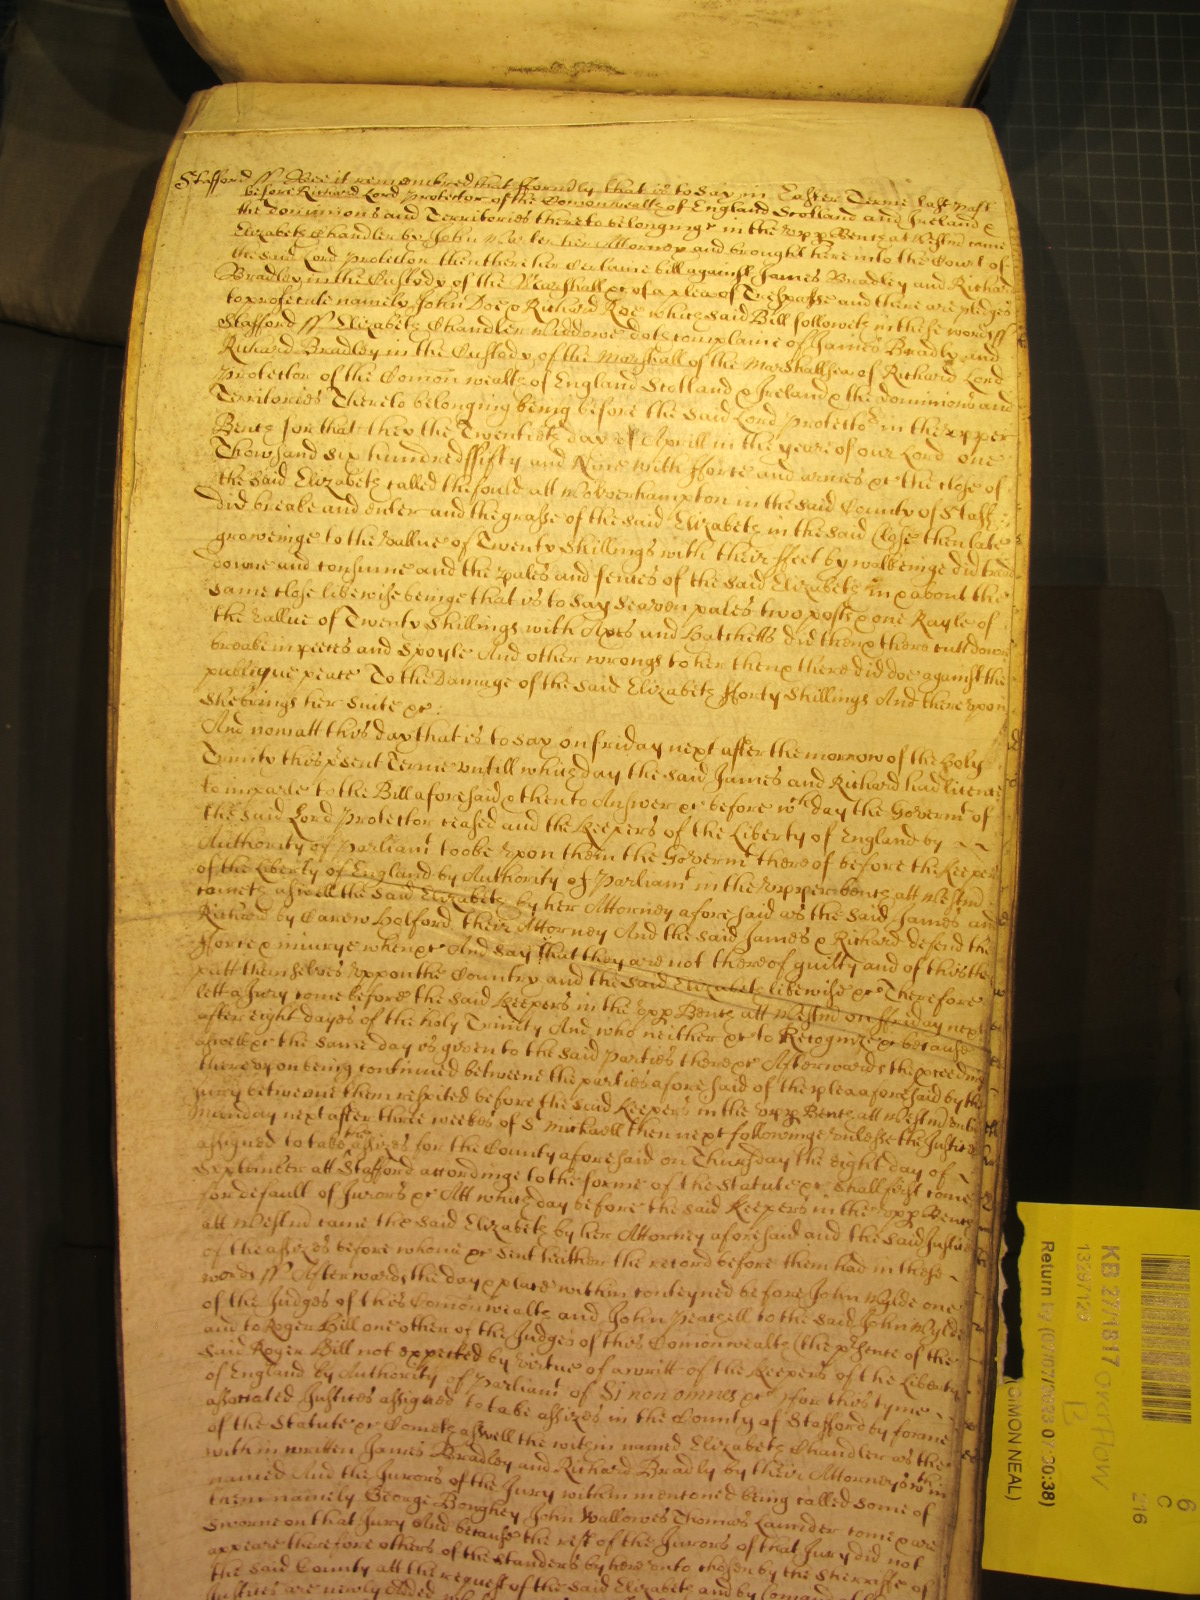 Stafford ss Bee it remembred that fformerly that is to say in Easter Terme last past
before Richard Lord Protector of the Comonwealth of England Scotland and Ireland &
the Dominions and Territories thereto belonginge in the Upp Bench at Westm came
Elizabeth Chandler by John her Attorney and brought here into the Court of
the said Lord Protector then there her Certaine bill against James Bradley and Richard
Bradley in the Custody of the Marshall &c of a plea of Trespasse and there are pledges
to prosecute namely John Doe & Richard Roe which said Bill followeth in these words ss
Stafford ss Elizabeth Chandler Widdowe doth complaine of James Bradly and
Richard Bradley in the Custody of the Marshall of the Marshallsea of Richard Lord
Protector of the Comon wealth of England Scotland & Ireland & the dominions and
Territories Thereto belonging being before the said Lord Protector in the upper
Bench for that they the Twentieth day of Aprill in the yeare of our Lord one
Thowsand six hundred ffifty and Nine with fforce and armes &c the close of
the said Elizabeth called the ffould att Wolverhampton in the said County of Staff
did breake and enter and the grasse of the said Elizabeth in the said Close then late
groweinge to the vallue of Twenty Shillings with their ffeet by walkeinge did tread
downe and consume and the pales and fences of the said Elizabeth in & about the
same close likewise beinge that is to say Seaven pales two posts & one Rayle of
the vallue of Twenty Shillings with Axes and Hatchetts did then & there cutt down
breake in peices and Spoyle And other wrongs to her then & there did doe against the
publique peace To the Damage of the said Elizabeth fforty Shillings And thereupon
she brings her suite &c
And now att this day that is to say on friday next after the morrow of the Holy
Trinity this psent Terme untill which day the said James and Richard had licence
to imparle to the Bill aforesaid & then to Answer &c before wch day the Governmt of
the said Lord Protector ceased and the Keepers of the Liberty of England by
Authority of Parliamt tooke upon them the Governmt thereof before the Keepers
of the Liberty of England by Authority of Parliamt in the upper bench att Westm
cometh aswell the said Elizabeth by her Attorney aforesaid as the said James and
Richard by Carew Holford their Attorney And the said James & Richard defend the
fforce & iniurye when &c And say that they are not thereof guilty and of this they
putt themselves uppon the Country and the said Elizabeth likewise &c Therefore
lett a Jury come before the said Keepers in the upp Bench att Westm on ffriday next
after eight dayes of the holy Trinity And who neither &c to Recognize &c because
aswell &c the same day is given to the said parties there &c Afterwards the proceedings
thereupon being continued betweene the parties aforesaid of the plea aforesaid by the
Jury betweene them respited before the said Keepers in the upp Bench att Westm untill
Munday next after three weekes of St Michaell then next followinge unlesse the Justices
assigned to take the assizes for the County aforesaid on Thursday the eight day of
September att Stafford accordinge to the forme of the Statute &c shall first come
for default of Jurors &c Att which day before the said Keepers in the upp Bench
att Westm came the said Elizabeth by her Attorney aforesaid and the said Justices
of the assizes before whome &c sent hither the record before them had in these
words ss Afterwards the day & place within conteyned before John Wylde one
of the Judges of this Comonwealth and John Peachell to the said John Wylde
and to Roger Hill one other of the Judges of this Comonwealth (the psence of the
said Roger Hill not expected by vertue of a writt of the Keepers of the Liberty
of England by Authority of Parliamt of Si non omnes &c) for this tyme
associated Justices assigned to take assizes in the County of Stafford by forme
of the Statute &c Cometh aswell the within named Elizabeth Chandler as the
within written James Bradley and Richard Bradly by their Attorneys wthin
named And the Jurors of the Jury within mentioned being called some of
them namely George Bonghey John Wallowes Thomas Launder come & are
sworne on that Jury And because the rest of the Jurors of that Jury did not
appeare therefore others of the standers by here unto chosen by the sherriffe of
the said County att the request of the said Elizabeth and by Comand of the
Justices are newly added
KB 27/1817 overflow
1329/7129
B
Return by (07/07/2023 07:00:38)
(SIMON NEAL)
6
C
216